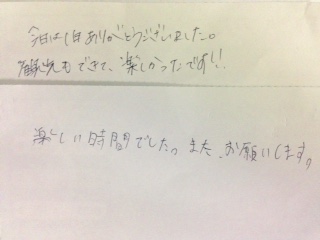 今日は1日ありがとうございました。
観光もできて、楽しかったです!!
楽しい時間でした。また、お願いします。